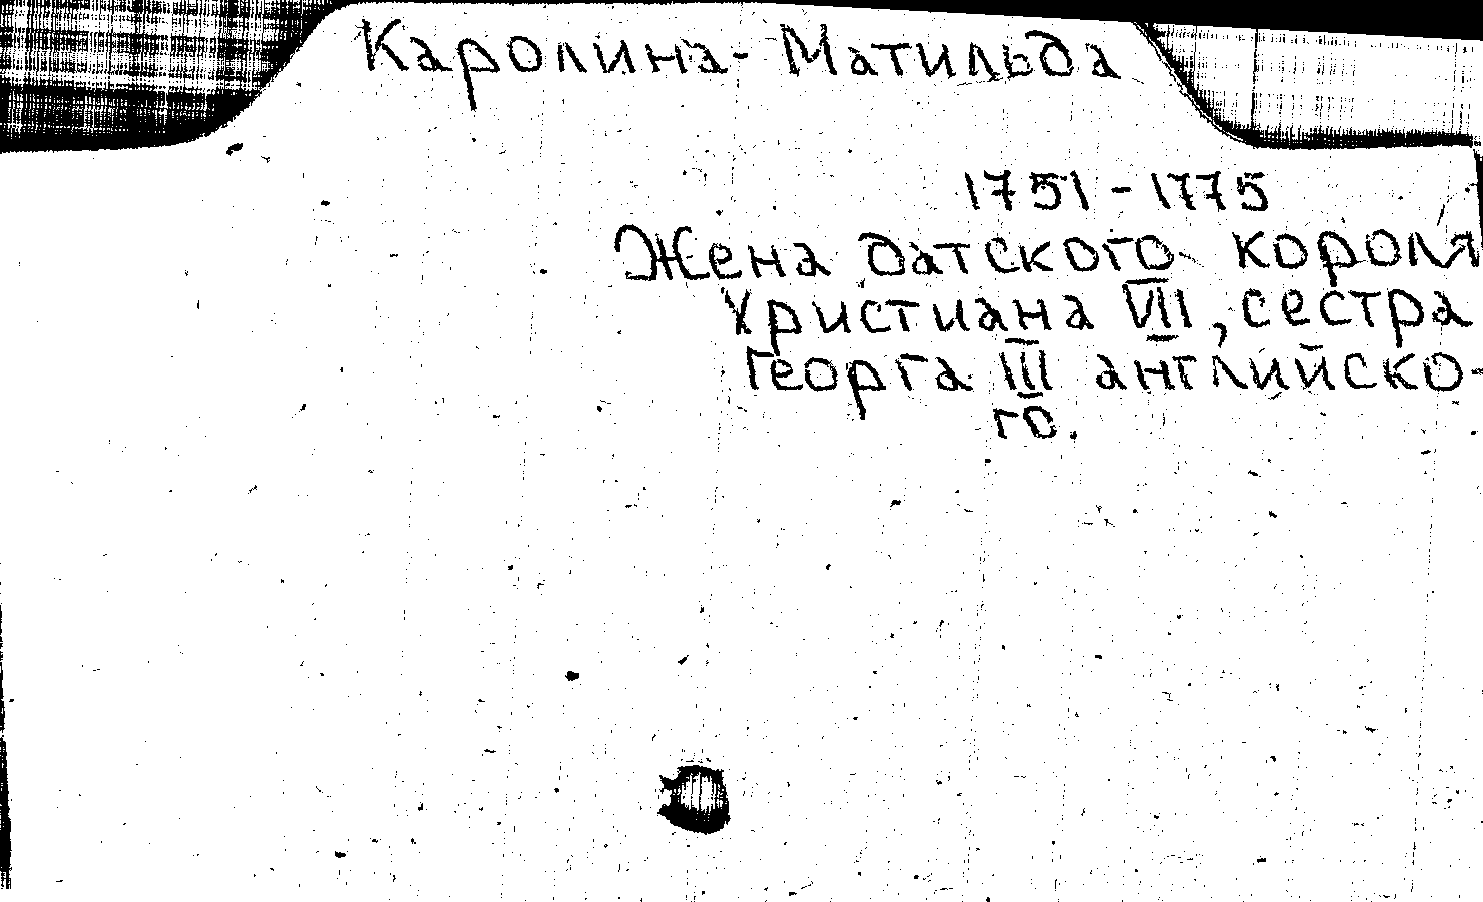 Каролина-Матильда
1751-1775
Жена датского короля
Христиана VII, сестра
Георга III английско-
го.